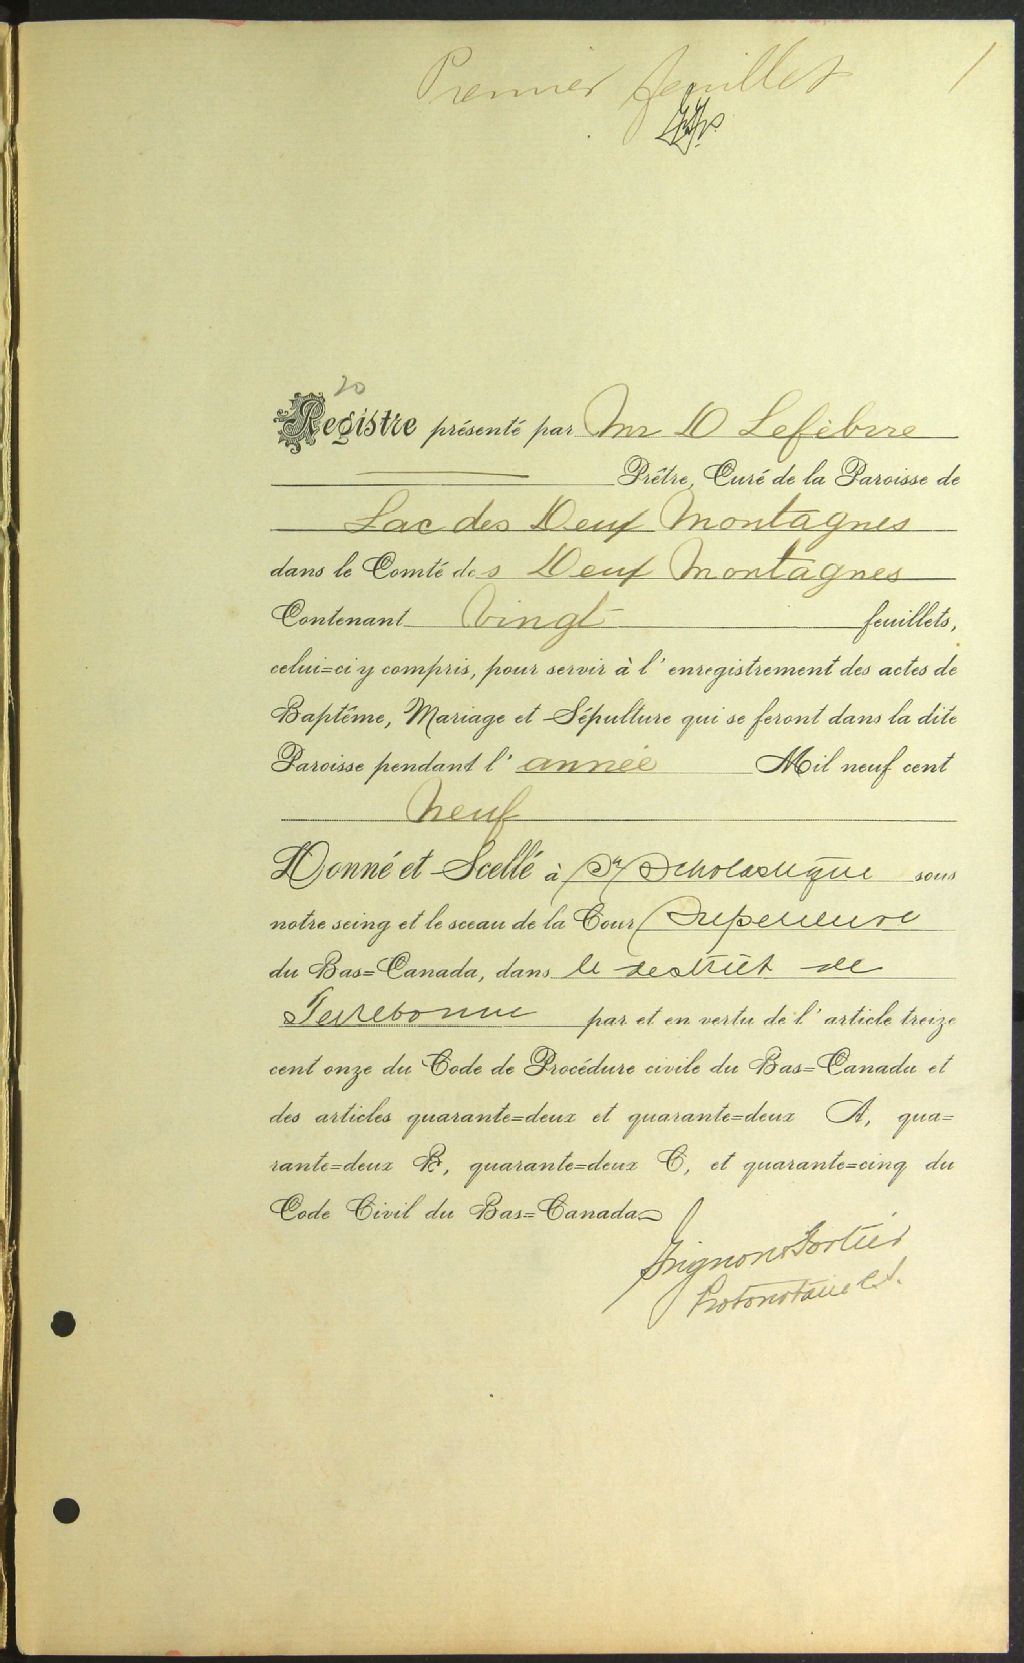 Premier feuillet 1
20
Registre présenté par Mr D Lefebvre
Prêtre, Curé de la Paroisse de
Lac des Deux Montagnes
dans le Comté des Deux Montagnes
Contenant Vingt feuillets,
celui=ci y compris, pour servir à l'enregistrement des actes de
Baptême, Mariage et Sépulture qui se feront dans la dite
Paroisse pendant l'année Mil neuf cent
Neuf
Donné et Scellé à Ste Scholastique sous
notre seing et le sceau de la Cour Superieure
du Bas=Canada, dans le district de
Terrebonne par et en vertu de l'article treize
cent onze du Code de Procédure civile du Bas=Canada et
des articles quarante=deux et quarante=deux A, qua=
rante=deux B, quarante=deux C, et quarante=cinq du
Code Civil du Bas=Canada
Grignon & Fortier
Protonotaire C.S.